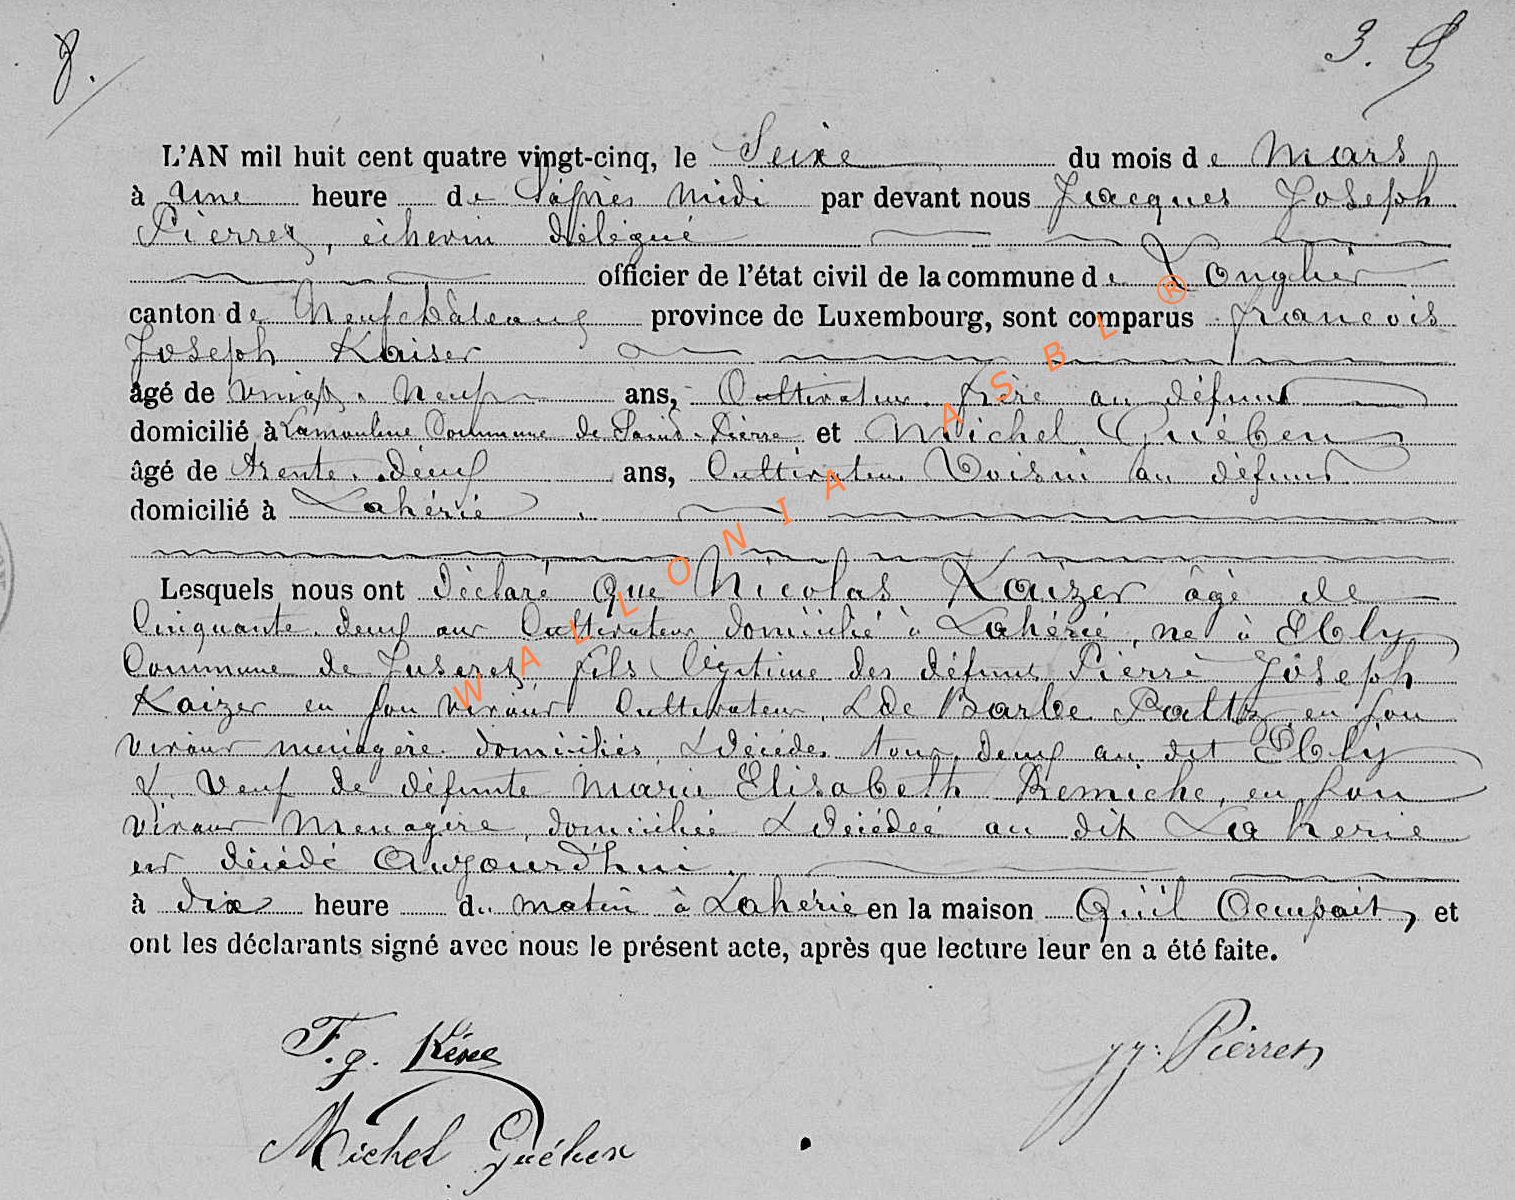 8.
3.
L'AN mil huit cent quatre vingt-cinq, le Seize du mois de Mars
à une heure de l'après midi par devant nous Jacques Joseph
Pierret, échevin délégué
officier de l'état civil de la commune de Longlier
canton de Neufchâteau province de Luxembourg, sont comparus francois
Joseph Kaiser
âgé de vingt-neuf ans, Cultivateur frère au défunt
domicilié à Lamouline Commune de Saint-Pierre et Michel Guében
âgé de trente-deux ans, Cultivateur Voisin au défunt
domicilié à Lahérie
Lesquels nous ont déclaré que Nicolas Kaizer âgé de
Cinquante deux ans Cultivateur domicilié à Lahérié, né à Ebly
Commune de Juseret fils légitime des défunts Pierre Joseph
Kaizer en son vivant Cultivateur, & de Barbe Paltz, en son
vivant ménagère domiciliés & décédés tous deux au dit Ebly
& Veuf de défunte Marie Elisabeth Remiche, en son
vivant Menagère, domiciliée & décédée au dit Laherie
est décédé Aujourd'hui
à dix heure du matin à Lahérie en la maison Qu'il Occupait, et
ont les déclarants signé avec nous le présent acte, après que lecture leur en a été faite.
F. J.
JJ. Pierret
Michel Guében
WALLONIA ASBL ®